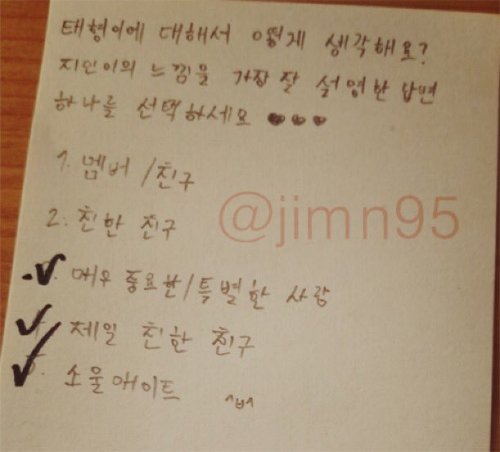 태형이에 대해서 어떻게 생각해요?
지민이의 느낌을 가장 잘 설명한 답변
하나를 선택하세요 ♥♥♥
1. 멤버 / 친구
2. 친한 친구
매우 중요한/특별한 사람
제일 친한 친구
5. 소울메이트 ^ㅂ^
@jimn95